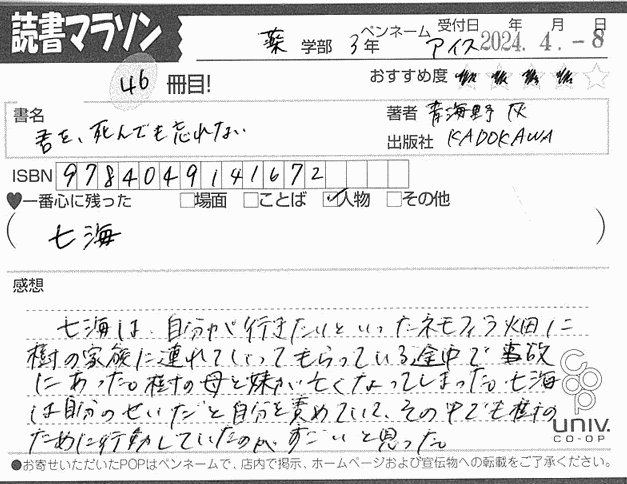 読書マラソン
薬 学部 3年 ペンネーム アイス 受付日 年 月 日
2024. 4. -8
46 冊目!
おすすめ度
書名
君を、死んでも忘れない
著者 青海野 灰
出版社 KADOKAWA
ISBN 9784049141672
♥一番心に残った □場面 □ことば ☑人物 □その他
( 七海 )
感想
七海は、自分が行きたいといったネモフィラ畑に
樹の家族に連れてしいってもらっている途中で事故
にあった。樹の母と妹が亡くなってしまった。七海
は自分のせいだと自分を責めていて、その中でも樹の
ために行動していたのが、すごいと思った。
coop
UNIV.
CO-OP
●お寄せいただいたPOPはペンネームで、店内で掲示、ホームページおよび宣伝物への転載をご了承ください。